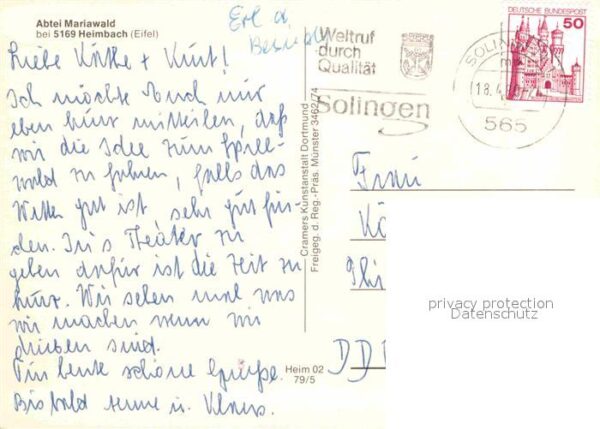 Abtei Mariawald
bei 5169 Heimbach (Eifel)
Erl. d.
Liebe Käthe + Kurt!
Ich möchte Euch nur
eben kurz mitteilen, daß
wir die Idee zum Spree
wald zu fahren, falls das
Wetter gut ist, sehr gut fin-
den. In's Theater zu
gehen dafür ist die Zeit zu
kurz. Wir sehen mal was
wir machen wenn wir
drüben sind.
Für heute schöne Grüße.
Bis bald Anne u. Klaus.
Cramers Kunstanstalt Dortmund
Freigeg. d. Reg.-Präs. Münster 3462/74
Heim 02
79/5
Weltruf
durch
Qualität
Solingen
SOLIN
18.4
565
DEUTSCHE BUNDESPOST
50
Frau
Kä
DD
privacy protection
Datenschutz